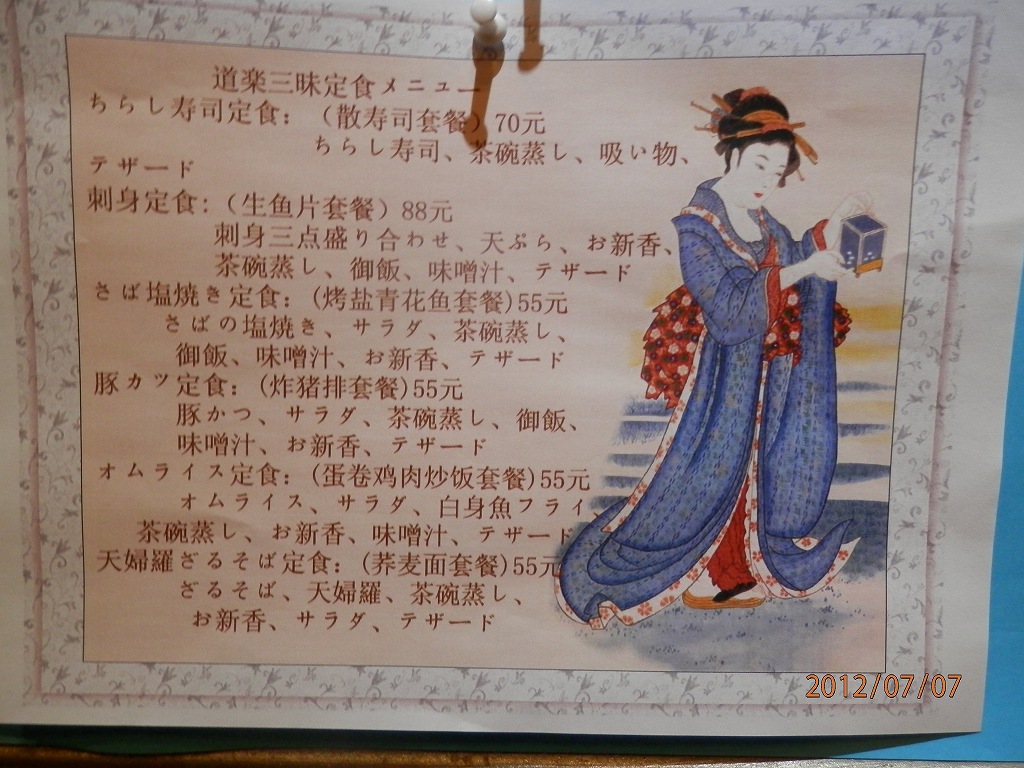 道楽三昧定食メニュー
ちらし寿司定食：（散寿司套餐）70元
ちらし寿司、茶碗蒸し、吸い物、
テザード
刺身定食：（生鱼片套餐）88元
刺身三点盛り合わせ、天ぷら、お新香、
茶碗蒸し、御飯、味噌汁、テザード
さば塩焼き定食：（烤盐青花鱼套餐)55元
さばの塩焼き、サラダ、茶碗蒸し、
御飯、味噌汁、お新香、テザード
豚カツ定食：（炸猪排套餐)55元
豚かつ、サラダ、茶碗蒸し、御飯、
味噌汁、お新香、テザード
オムライス定食：（蛋卷鸡肉炒饭套餐)55元
オムライス、サラダ、白身魚フライ、
茶碗蒸し、お新香、味噌汁、テザード
天婦羅ざるそば定食：（荞麦面套餐)55元
ざるそば、天婦羅、茶碗蒸し、
お新香、サラダ、テザード
2012/07/07